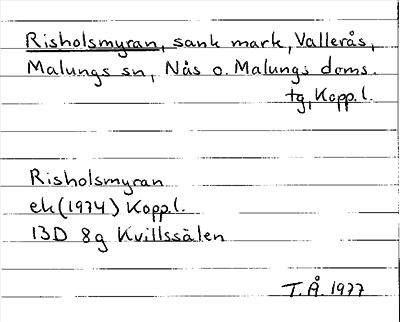 Risholmsmyran, sank mark, Vallerås,
Malungs sn, Nås o. Malungs doms.
tg, Kopp. l.
Risholmsmyran
ek (1974) Kopp. l.
13D 8g Kvillssälen
T. Å. 1977